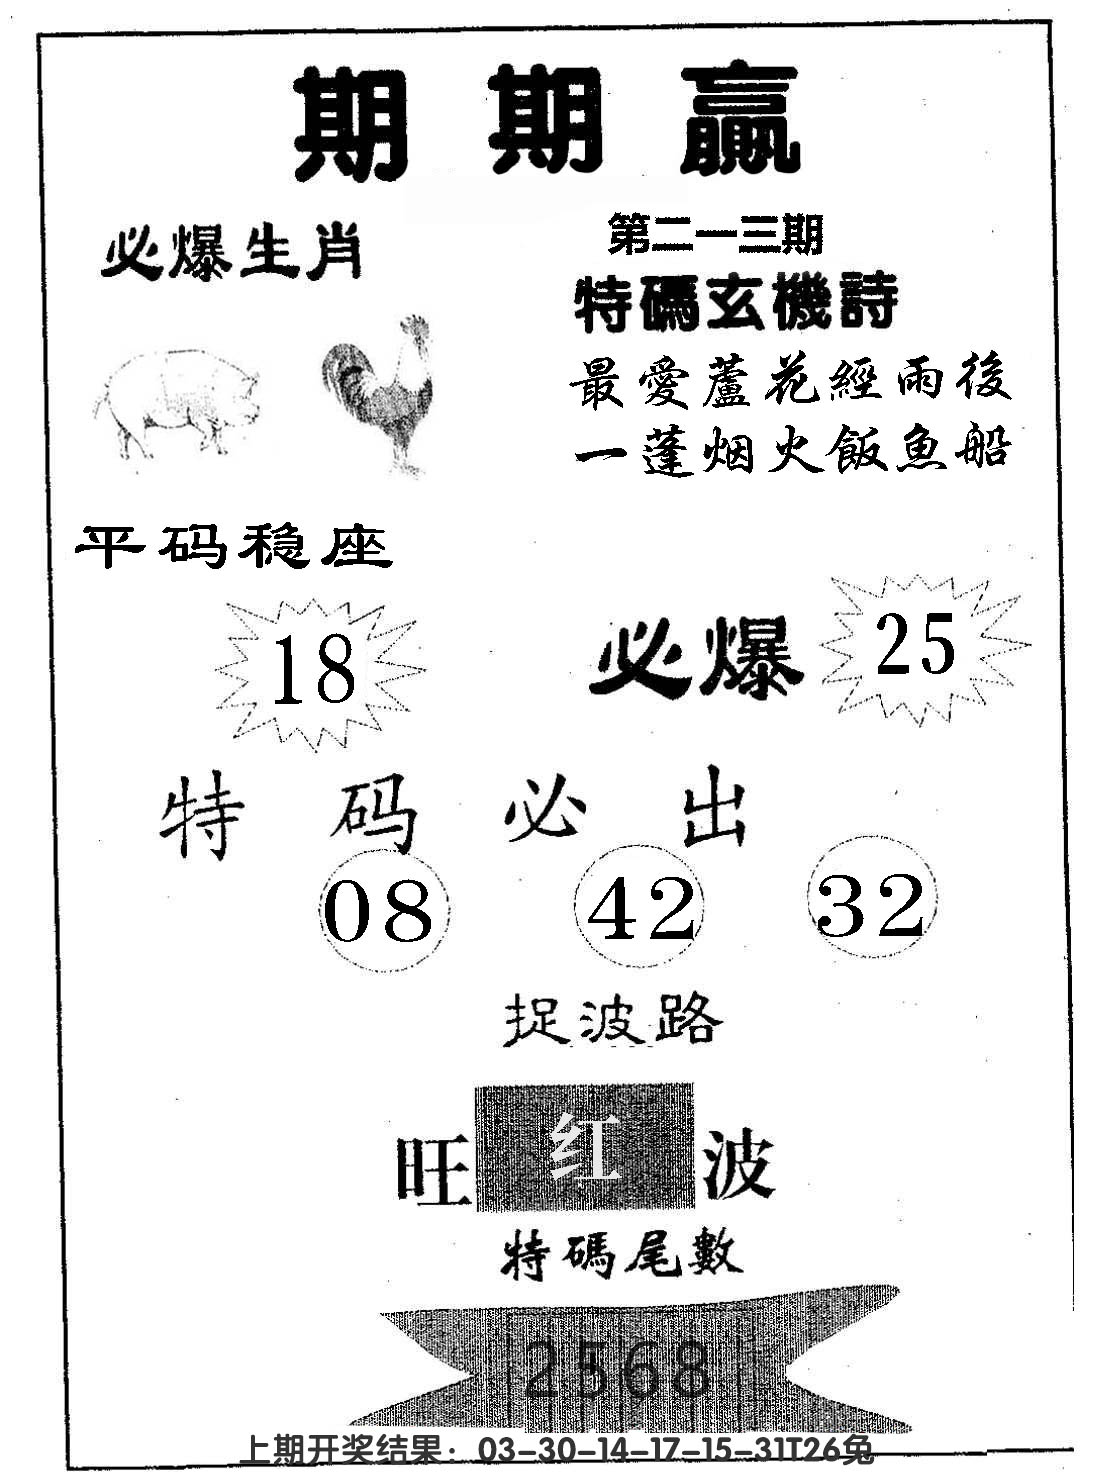 期期贏
必爆生肖
第二一三期
特碼玄機詩
最愛蘆花經雨後
一蓬烟火飯魚船
平码稳座
18
必爆 25
特码必出
08 42 32
捉波路
旺 红 波
特碼尾數
2568
上期开奖结果：03-30-14-17-15-31T26兔